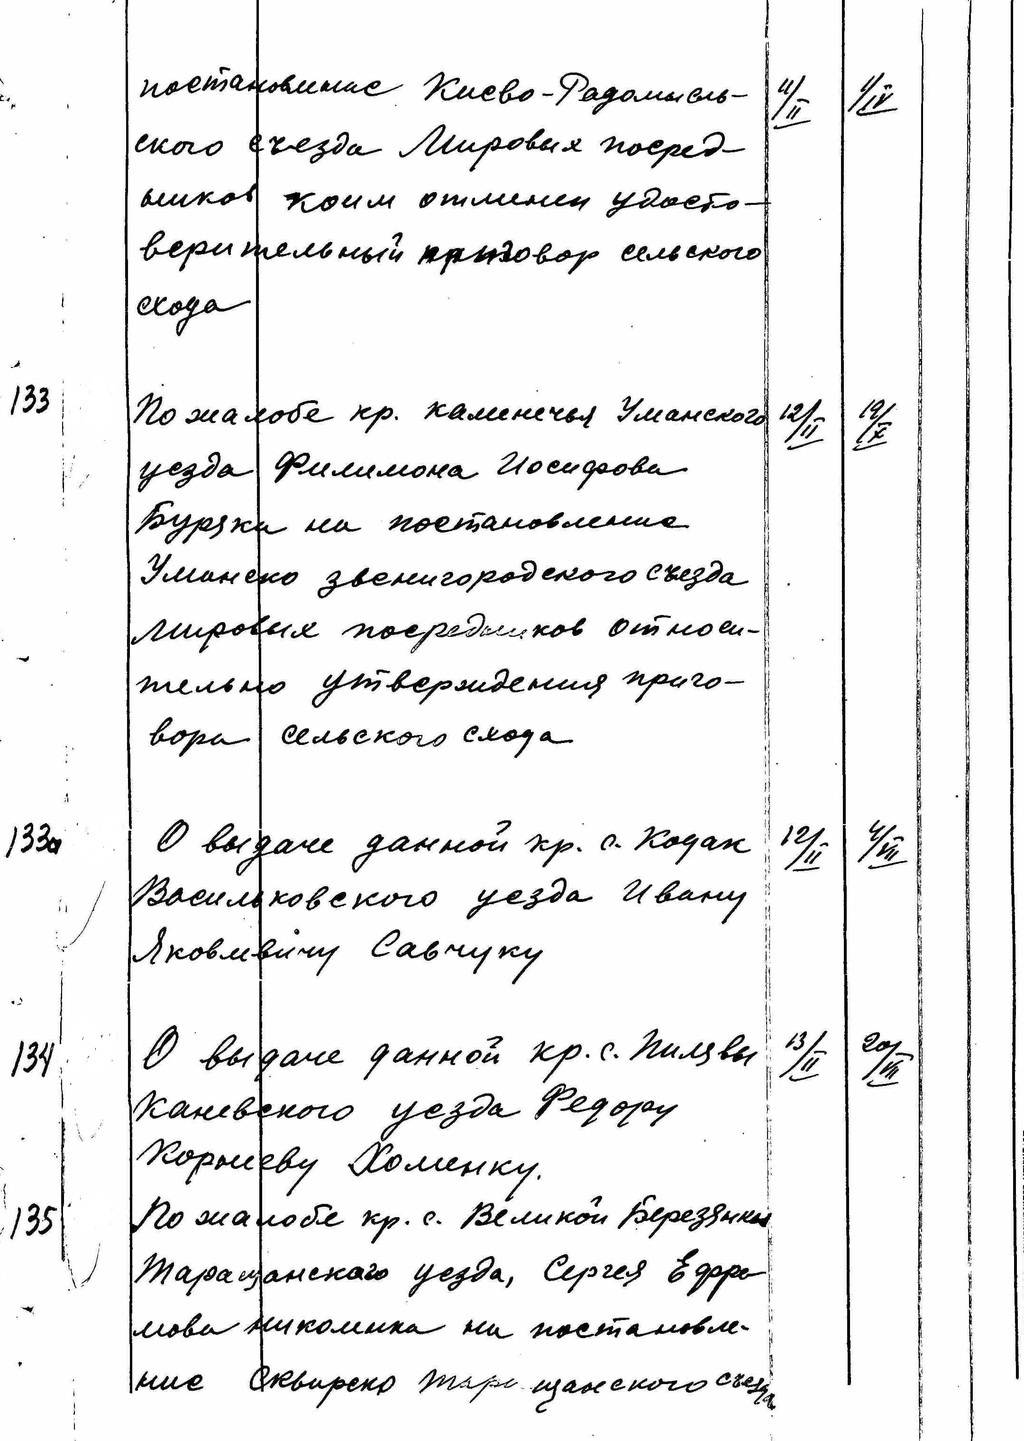 постановление Киево-Радомысль- 11/II 1/IV
ского съезда Мировых посред-
ников коим отменен удосто-
верительный приговор сельского
схода
133 По жалобе кр. Каменечья Уманского 12/II 19/X
уезда Филимона Иосифова
Буряка на постановление
Уманско звенигородского съезда
мировых посредников относи-
тельно утверждения приго-
вора сельского схода
133а О выдаче данной кр. с. Кодак 12/II 4/VIII
Васильковского уезда Ивану
Яковлевичу Савчуку
134 О выдаче данной кр. с. Пилявы 13/II 20/VIII
Каневского уезда Федору
Корневу Хоменку.
135 По жалобе кр. с. Великой Березянки
Таращанского уезда, Сергея Ефре
мова на постановле-
ние Сквирско таращанского съезда